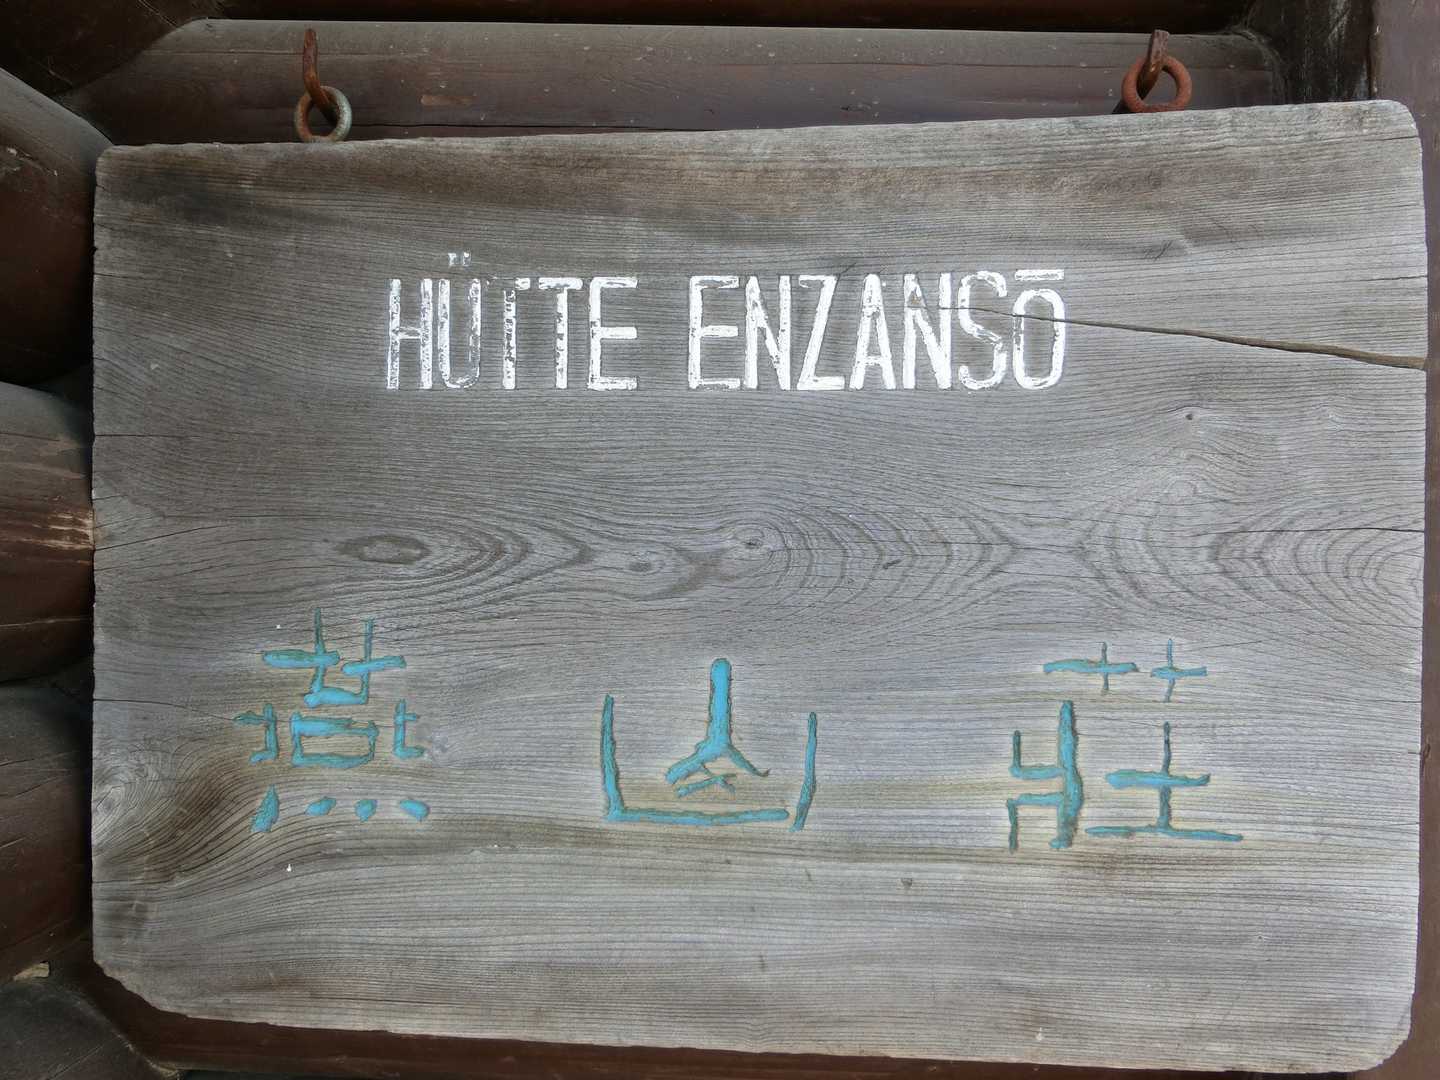 HÜTTE ENZANSŌ
燕山荘